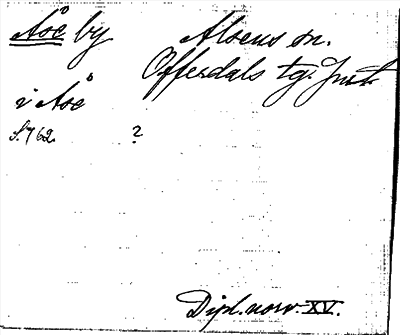 Åse by Alsens sn.
Offerdals tg. Jmt.
i Åsе
S. 762. ?
Dipl. norv. XV.